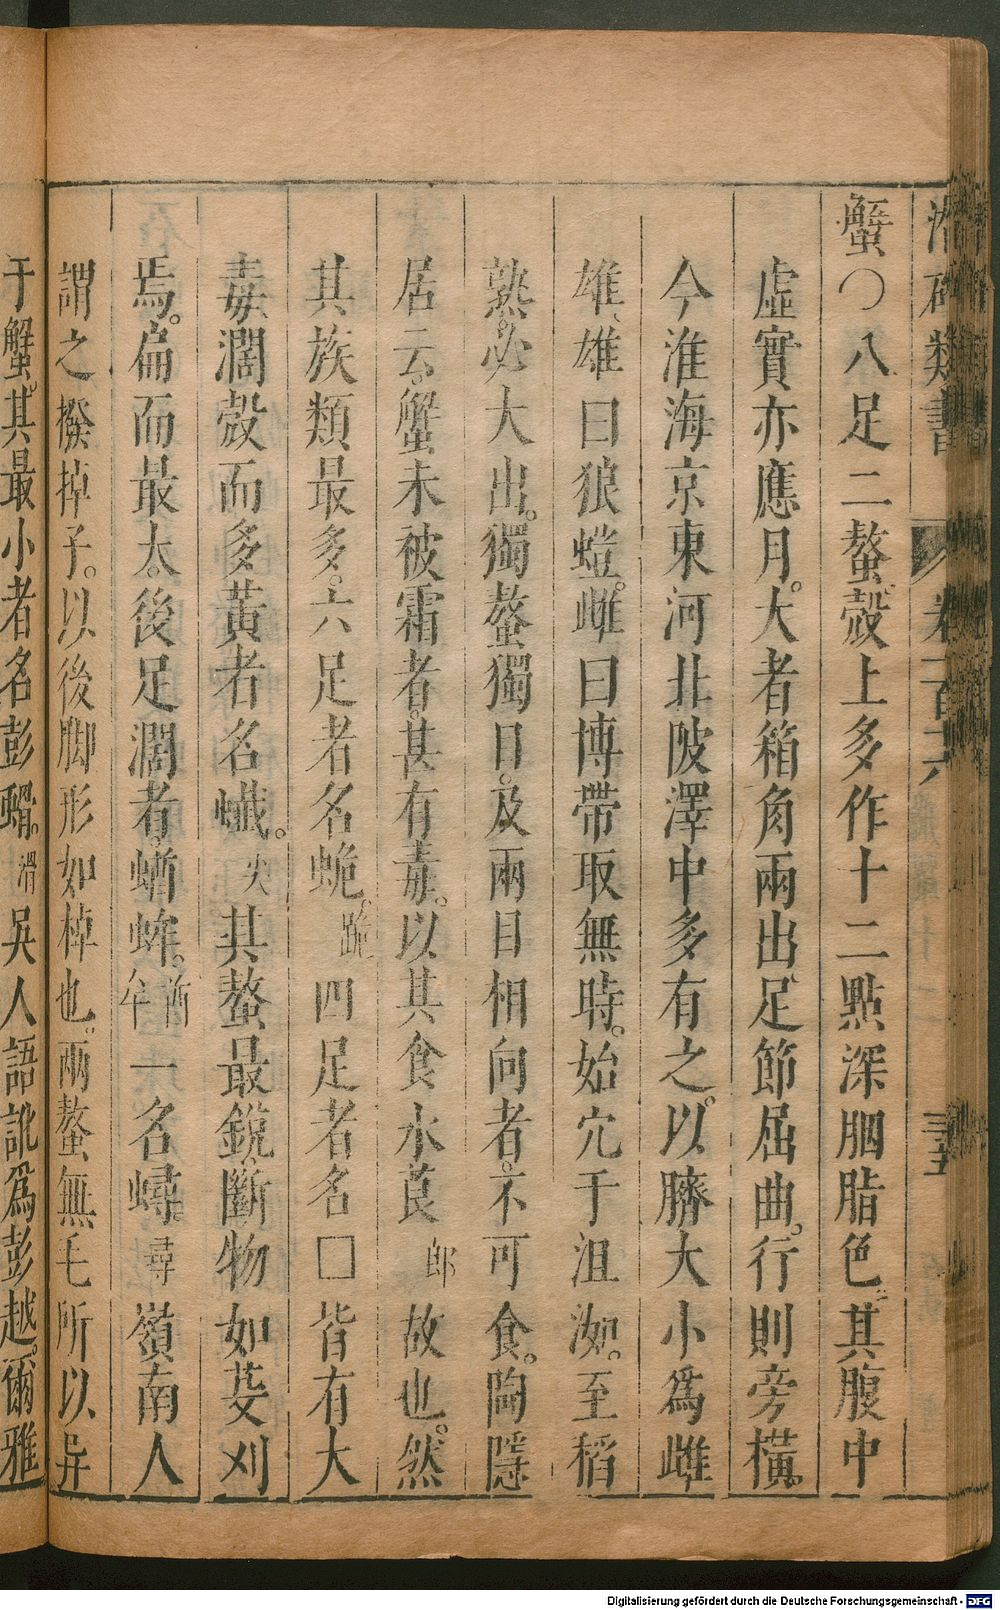 潛確類書 卷一百十六 三五
蟹○八足二螯殼上多作十二點深胭脂色其腹中
虛實亦應月。大者箱角兩出足節屈曲。行則旁橫。
今淮海京東河北陂澤中多有之。以臍大小爲雌
雄、雄曰狼螘。雌曰博帶取無時。始穴于沮洳。至稻
熟。必大出。獨螯獨目。及兩目相向者。不可食。陶隱
居云。蟹未被霜者。甚有毒。以其食水莨郎故也。然
其族類最多。六足者名蛫。跪四足者名□皆有大
毒濶殼而多黃者名蠘。尖其螯最銳。斷物如芟刈
焉。扁而最大。後足濶者。蝤蛑。酋牟一名蟳尋嶺南人
謂之撥掉子。以後脚形如棹也。兩螯無毛所以异
于蟹。其最小者名彭螖。滑吳人語訛爲彭越。爾雅
Digitalisierung gefördert durch die Deutsche Forschungsgemeinschaft - DFG